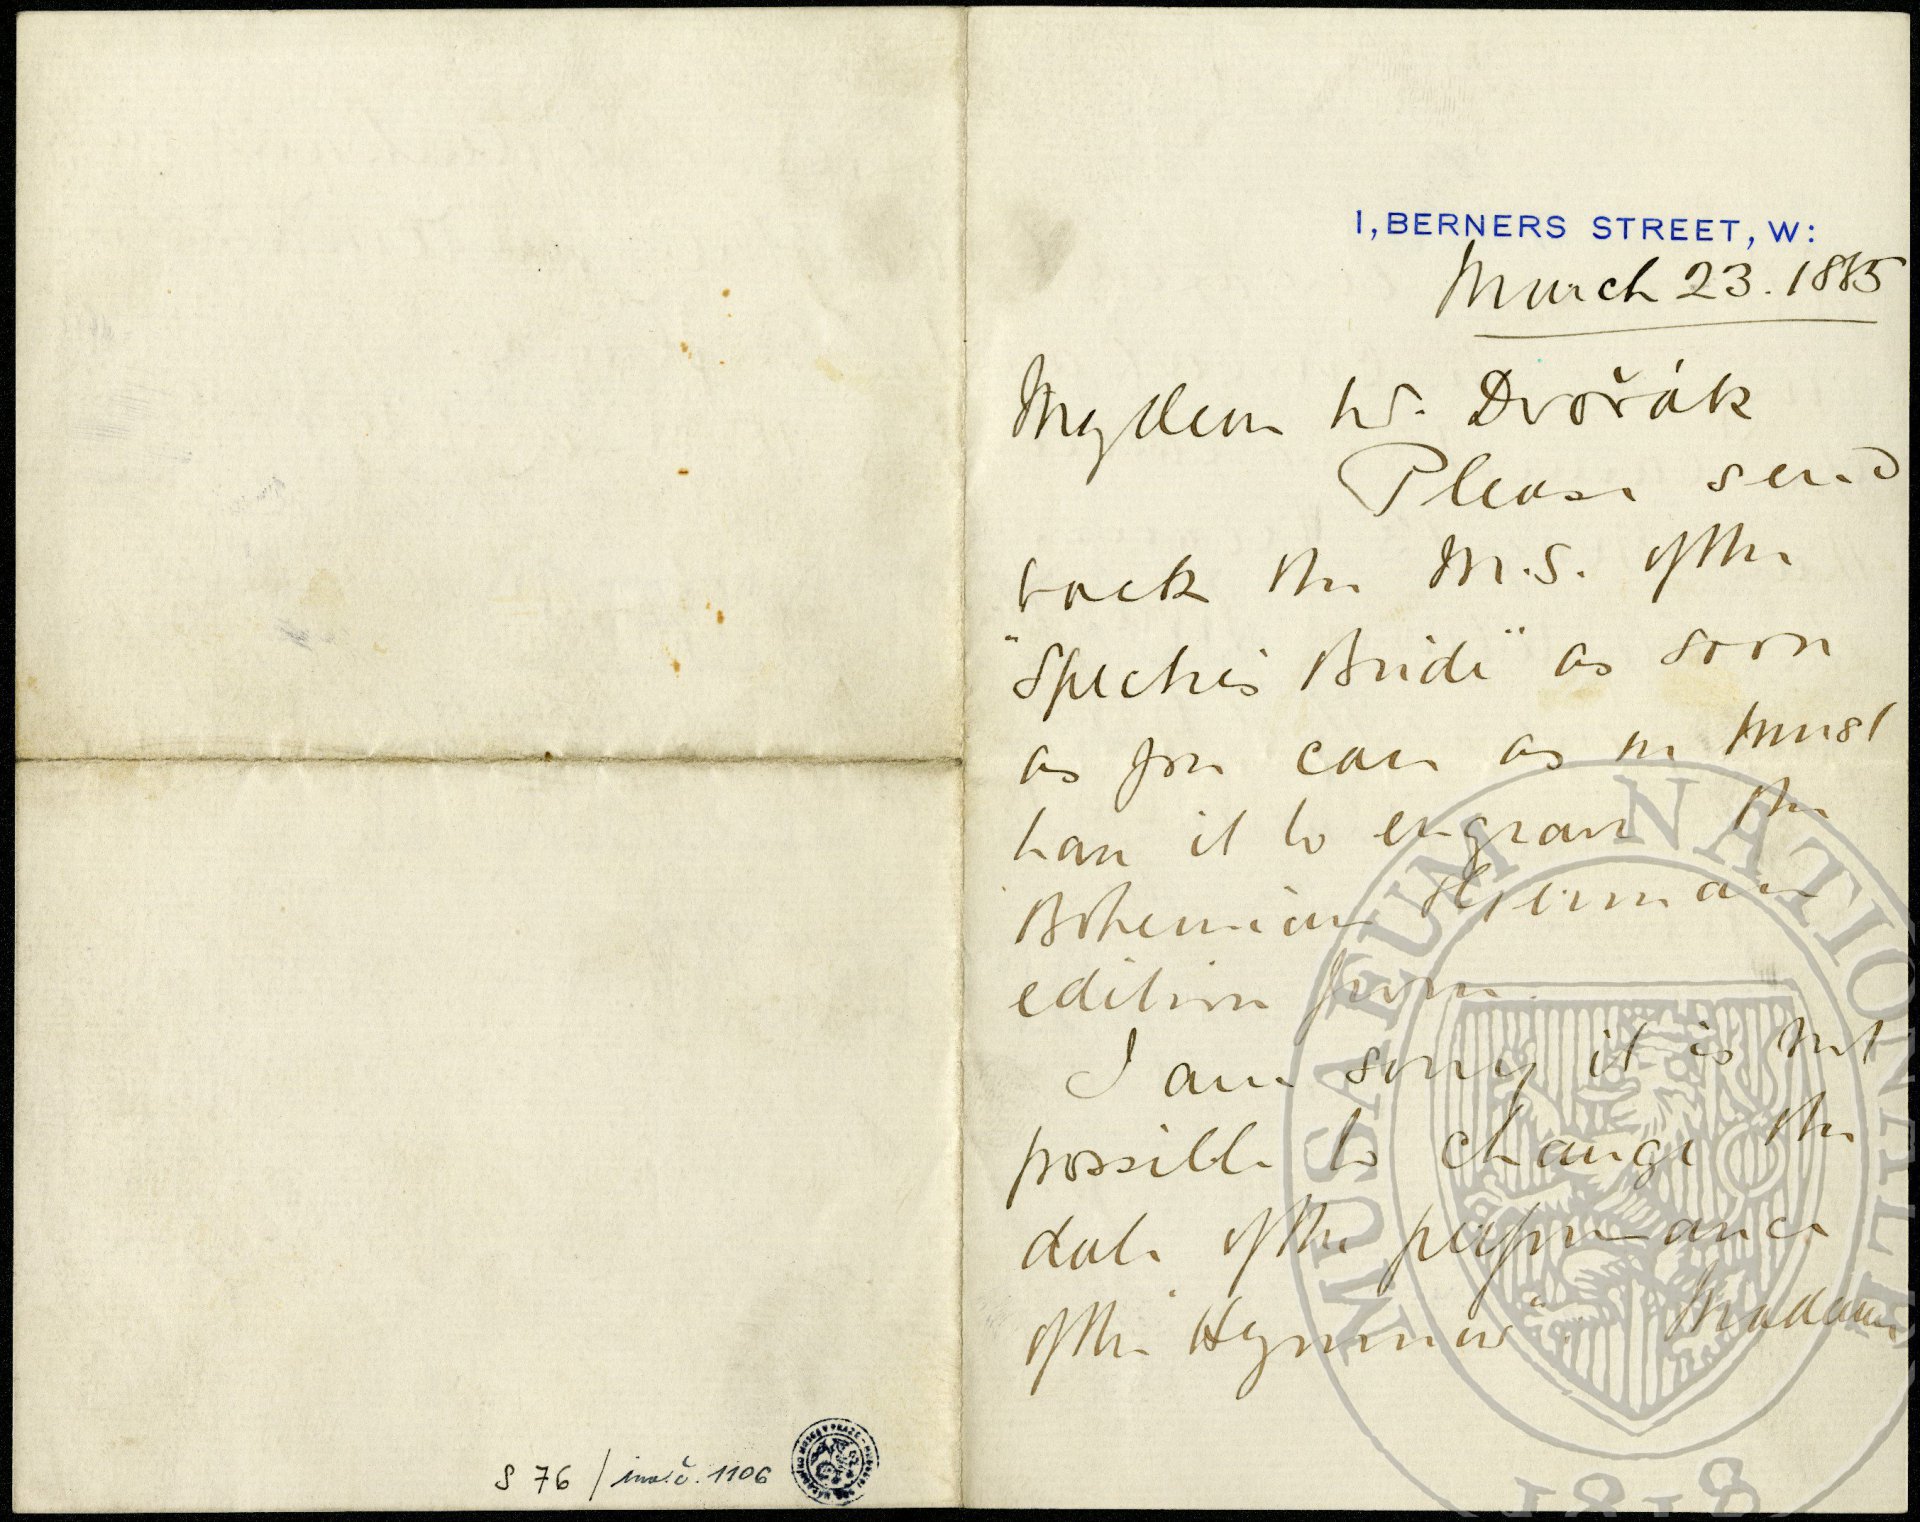 1, BERNERS STREET, W:
March 23. 1885
My dear Mr. Dvořák
Please send
back the M.S. of the
"Spectre's Bride" as soon
as you can as we must
have it to engrave the
Bohemian & German
edition from.
I am sorry it is not
possible to change the
date of the performance
of the "Hymnus". Madame
S 76 / inv. č. 1106
MUSAEUM NATIONALE
1818